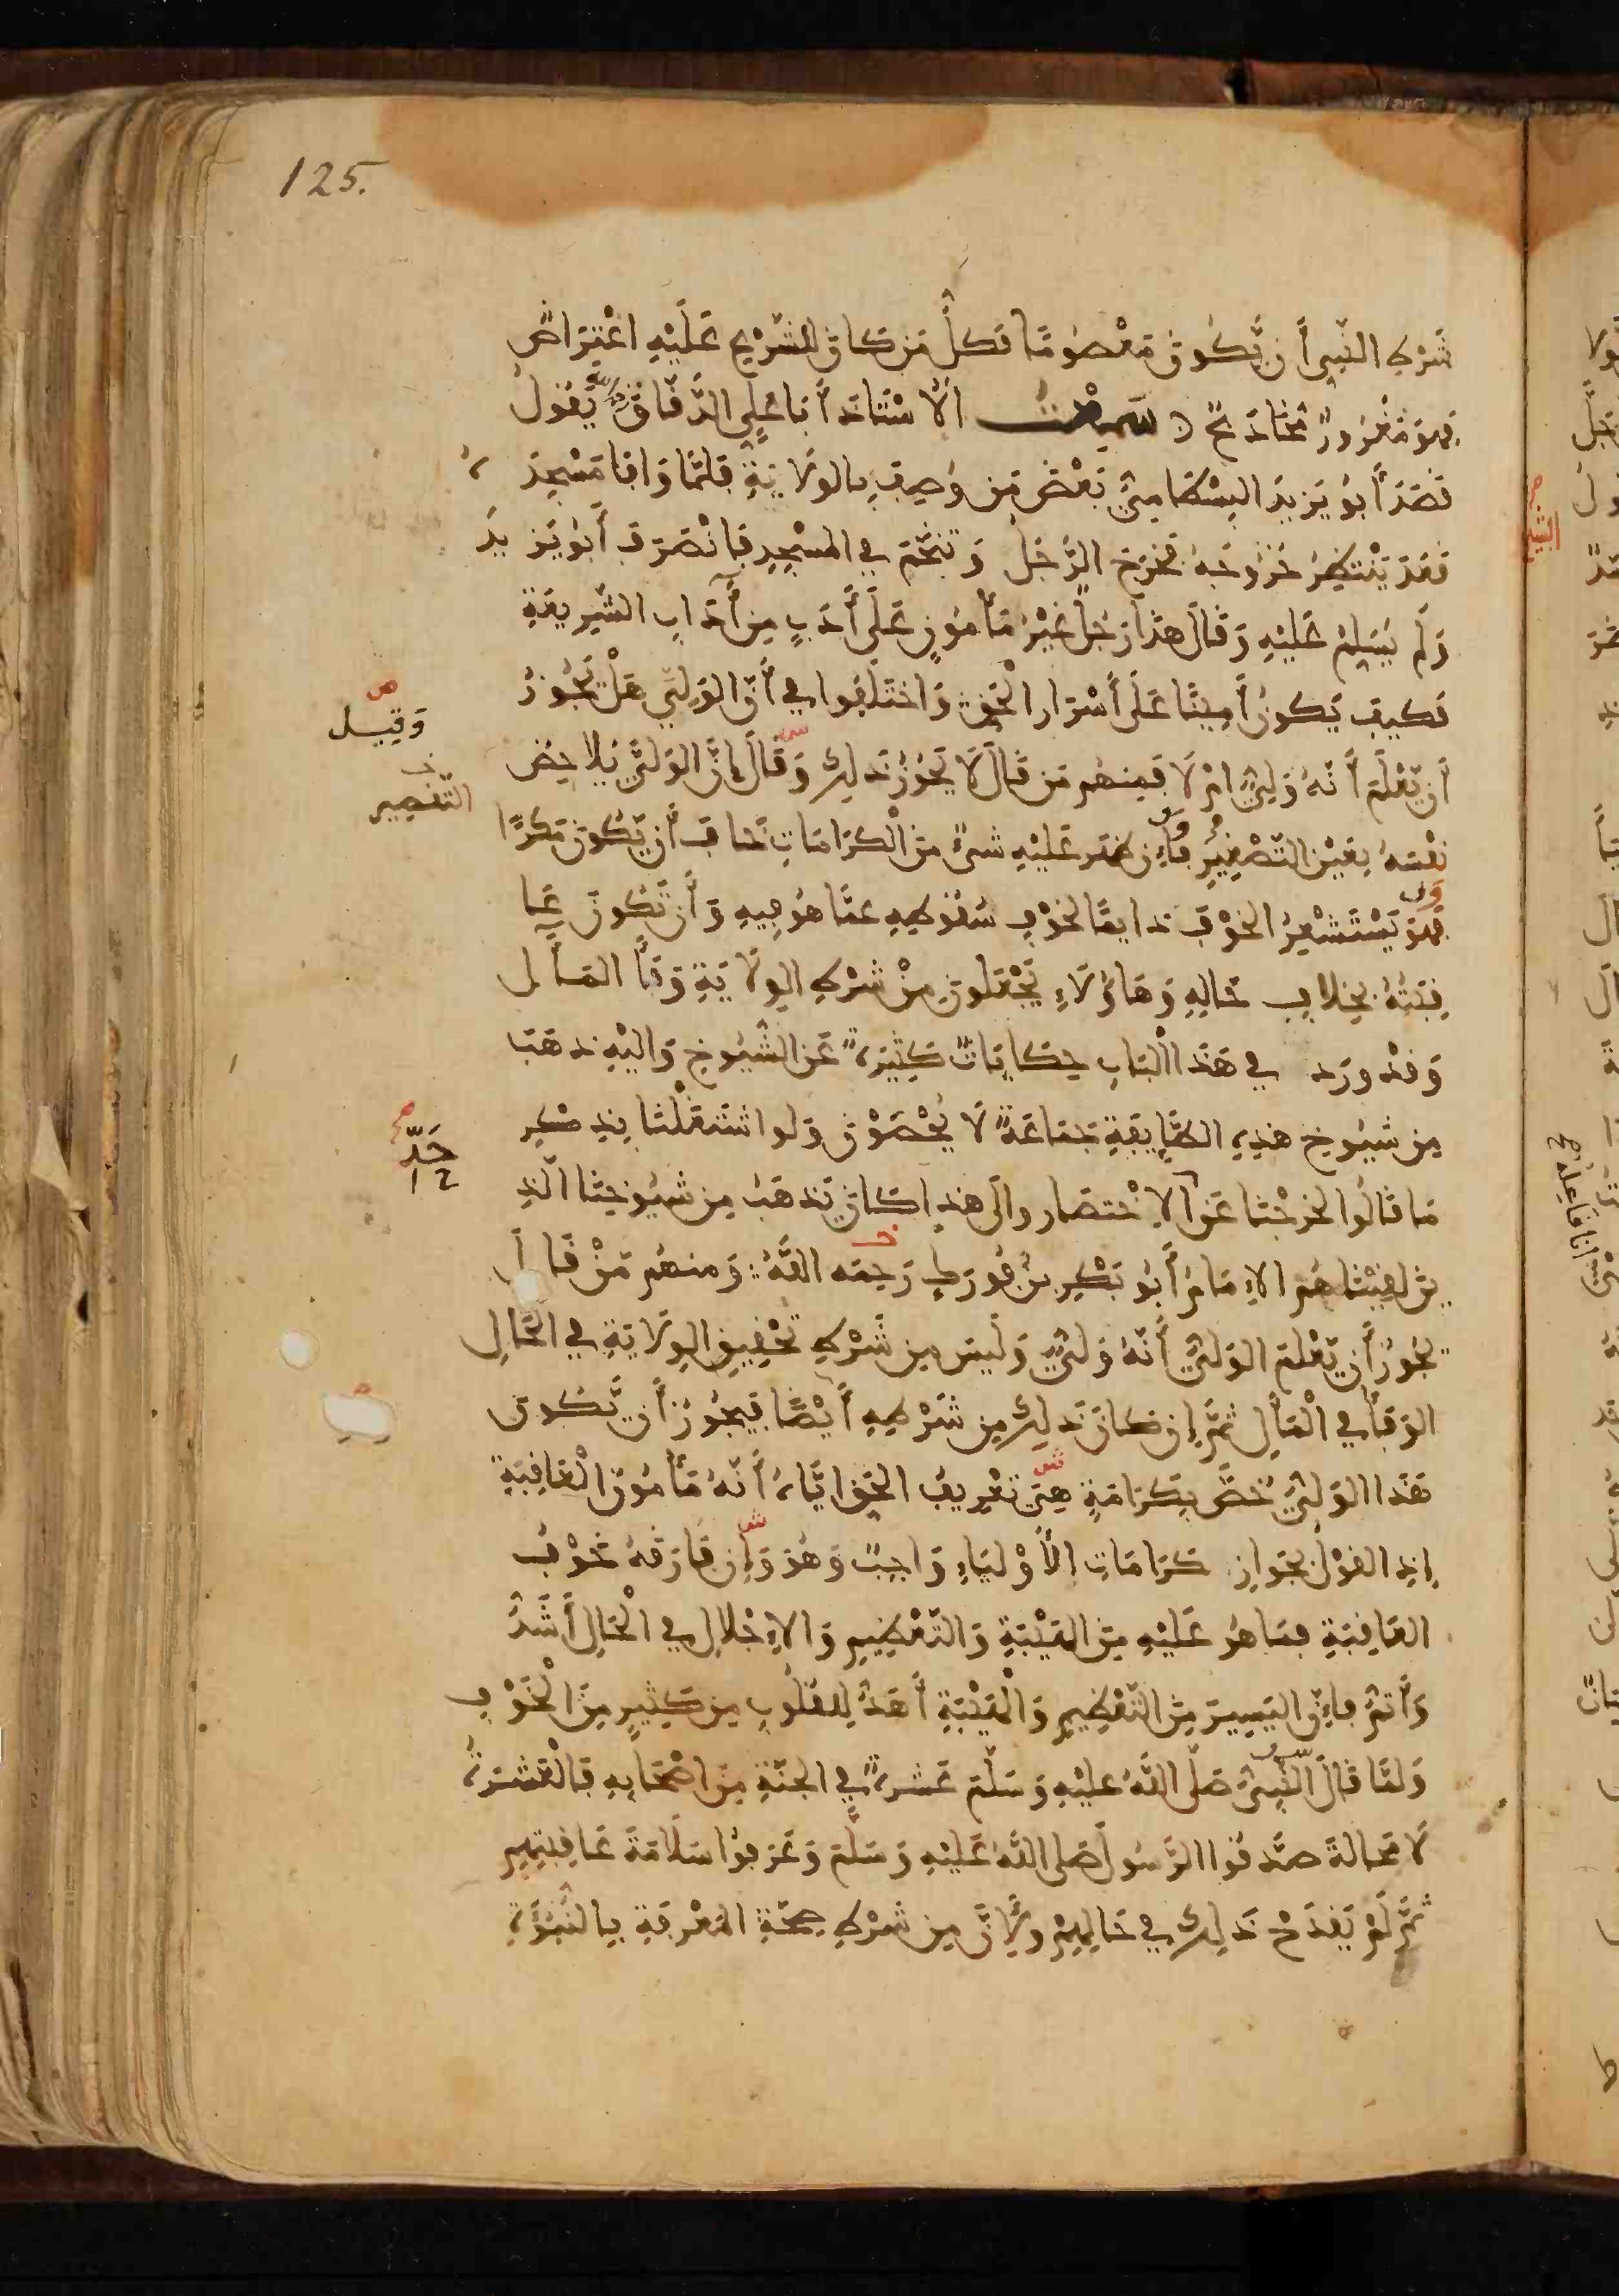 125.
شَرْطِ النَّبِي أَن يَّكُونَ مَعْصُومًا فَكُلُّ مَن كَانَ لِلشَّرْعِ عَلَيْهِ اعْتِرَاضٌ
فَهوَ مَغْرُورٌ مُخَادَعٌ سَمِعْتُ الأسْتَاذَ أَبَا عَلِي الدَّقَّاقَ يَقُولُ
قَصَدَ أَبُو يَزِيدَ البِسْطَامِيُّ بَعْضَ مَن وُصِفَ بِالوَلَايَةِ فَلَمَّا وَافَا مَسْجِدَهُ
قَعَدَ يَنْتَظِرُ خُرُوجَهُ فَخَرَجَ الرَّجُلُ وَتَنَخَّمَ فِي المَسْجِدِ فَانْصَرَفَ أَبُو يَزِيدَ
وَلَم يُسَلِّمْ عَلَيْهِ وَقَالَ هَذَا رَجُلٌ غَيْرُ مَأْمُونٍ عَلَى أَدَبٍ مِن آدَابِ الشَّرِيعَةِ
فَكَيفَ يَكُونُ أَمِينًا عَلَى أَسْرَارِ الْحَقِّ وَاخْتَلَفُوا فِي أَنَّ الوَلِيَّ هَلْ يَجُوزُ
أَن يَّعْلَمَ أَنَّهُ وَلِيٌّ امْ لَا فَمِنهُم مَن قَالَ لَا يَجُوزُ ذَلِكَ وَقَالَ إِنَّ الوَلِيَّ يُلَاحِظُ
نَفْسَهُ بِعَيْنِ التَّصْغِيرِ فَإِن ظَهَرَ عَلَيْهِ شَيْءٌ مِنَ الْكَرَامَاتِ خَافَ أَن يَّكُونَ مَكْرًا
فَهوَ يَسْتَشْعِرُ الخَوْفَ دَايِمًا لِخَوْفِ سُقُوطِهِ عَمَّا هُوَ فِيهِ وَأَن تَكُونَ عَا
قِبَتُهُ بِخِلَافِ حَالِهِ وَهَاؤُلَاءِ يَجْعَلُونَ مِنْ شَرْطِ الوِلَايَةِ وَفَأَ المَئَالِ
وَقَدْ وَرَدَ فِي هَذَا الْبَابِ حِكَايَاتٌ كَثِيرَةٌ عَنِ الشُّيُوخِ وَإلَيْهِ ذَهَبَ
مِن شُيُوخِ هَذِهِ الطَّايِفَةِ جَمَاعَةٌ لَا يُحْصَوْنَ وَلَو اشْتَغَلْنَا بِذِكْرِ
مَا قَالُوا لَخَرَجْنَا عَنِ الِاخْتِصَارِ وإلَى هَذِا كَانَ يَذْهَبُ مِن شُيُوخِنَا الَّذِ
ينَ لَقِينَاهُم الإِمَامُ أَبُو بَكْرِ بنُ فُورَكٍ رَحِمَه اللَّهُ وَمِنهُم مَنْ قَالَ
يَجُوزُ أَن يَّعْلَمَ الوَلِيُّ أَنَّهُ وَلِيٌّ وَلَيسَ مِن شَرْطِ تَحْقِيقِ الوِلَايَةِ فِي الْحَالِ
الوَفَأُ فِي الْمَئَالِ ثُمَّ إِن كَانَ ذَلِكَ مِن شَرْطِهِ أَيْضًا فَيَجُوزُ أَن يَّكُونَ
هَذَا الوَلِيُّ خُصَّ بِكَرَامَةٍ هِيَ تَعْرِيفُ الحَقِّ إيَّاهُ أَنَّهُ مَأْمُونُ الْعَاقِبَةِ
إِذِ القَوْلُ بِجَوَازِ كَرَامَاتِ الأَوْلِيَاءِ وَاجِبٌ وَهُوَ وَإِن فَارَقَهُ خَوْفُ
العَاقِبَةِ فَمَا هُوَ عَلَيْهِ مِنَ الهَيْبَةِ وَالتَّعْظِيمِ وَالإِجْلَالِ فِي الْحَالِ أَشَدُّ
وَأَتَمُّ فَإِنَّ اليَسِيرَ مِنَ التَّعْظِيمِ وَالْهَيْبَةِ أَهَدُّ لِلقُلُوبِ مِن كَثِيرٍ مِنَ الْخَوْفِ
وَلَمَّا قَالَ النَّبِيُّ صَلَّى اللَّهُ عَلَيْهِ وَسَلَّمَ عَشرَةٌ فِي الجَنَّةِ مِن اصْحَابِهِ فَالْعَشَرَةُ
لَا مَحَالَةَ صَدَّقُوا الرَّسُولَ صَلى اللَّهُ عَلَيْهِ وَسَلَّمَ وَعَرَفُوا سَلَامَةَ عَاقِبَتِهِم
ثُمَّ لَمْ يَقْدَحْ ذَلِكَ فِي حَالِهِمْ وَلِأَنَّ مِن شَرْطِ صِحَّةِ المَعْرِفَةِ بِالنُّبُوَّةِ
وَقِيـل
التَّقصِير